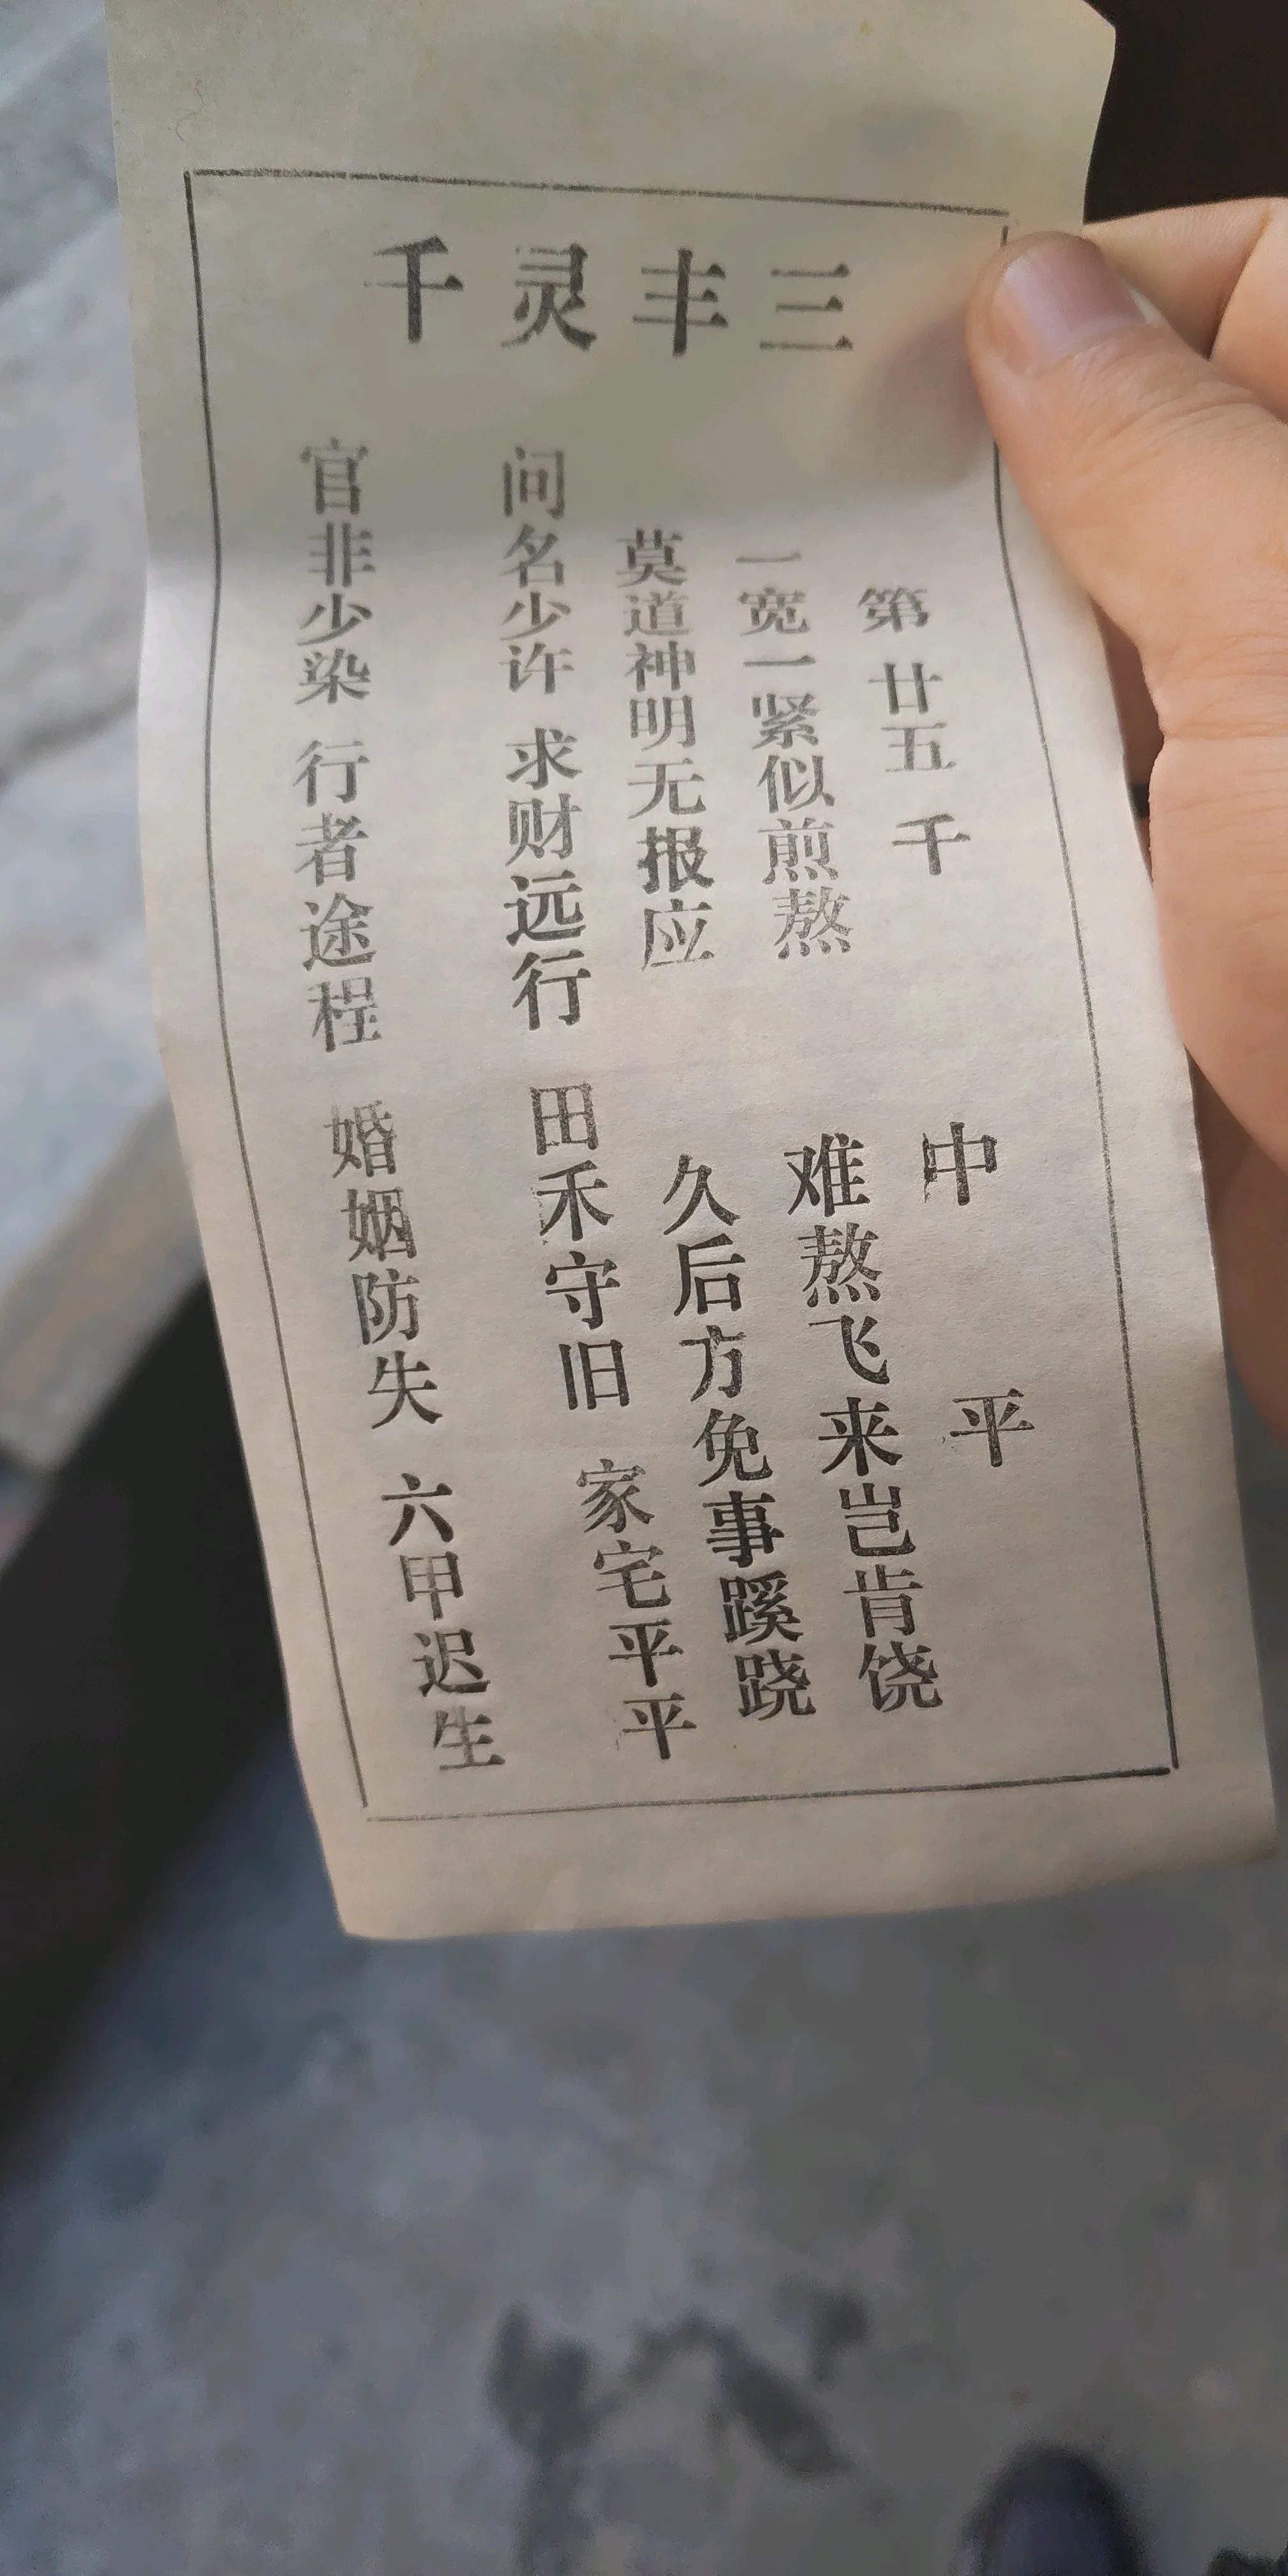 三丰灵千
第廿五千 中平
一宽一紧似煎熬 难熬飞来岂肯饶
莫道神明无报应 久后方免事蹊跷
问名少许 求财远行 田禾守旧 家宅平平
官非少染 行者途程 婚姻防失 六甲迟生